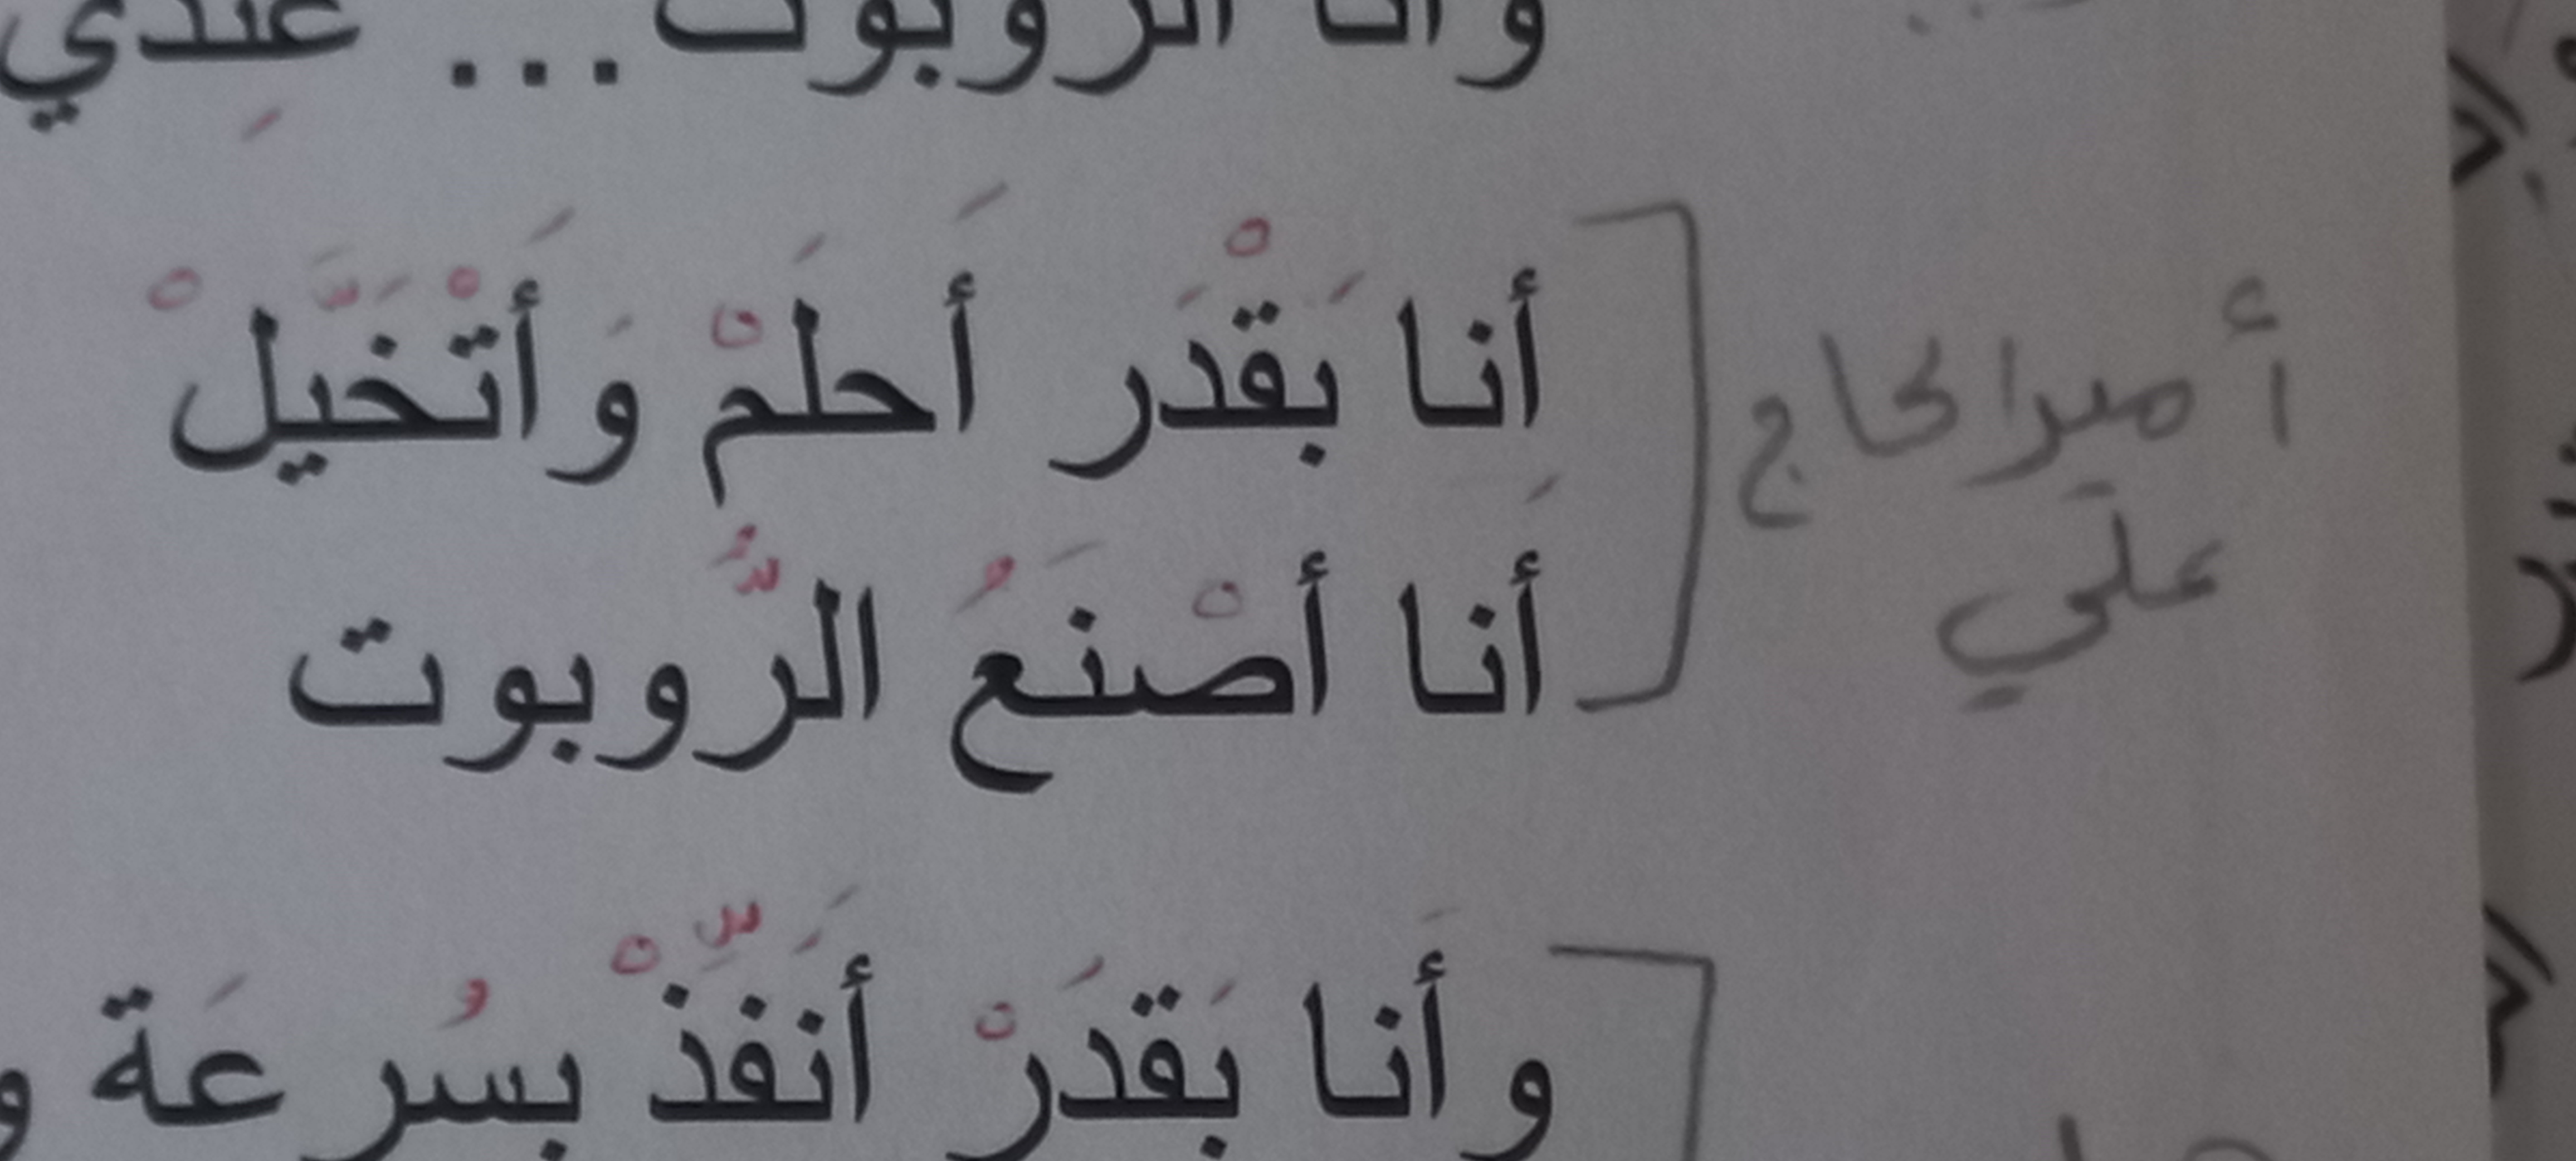 وأنا الروبوت... عِندي
أَنا بَقْدَر أَحلَمْ وَأَتْخَيَّلْ
أَنا أصْنَعُ الرُّوبوت
أمير الحاج
علي
وأَنا بَقدَرْ أَنَفِّذْ بسُرعَة و